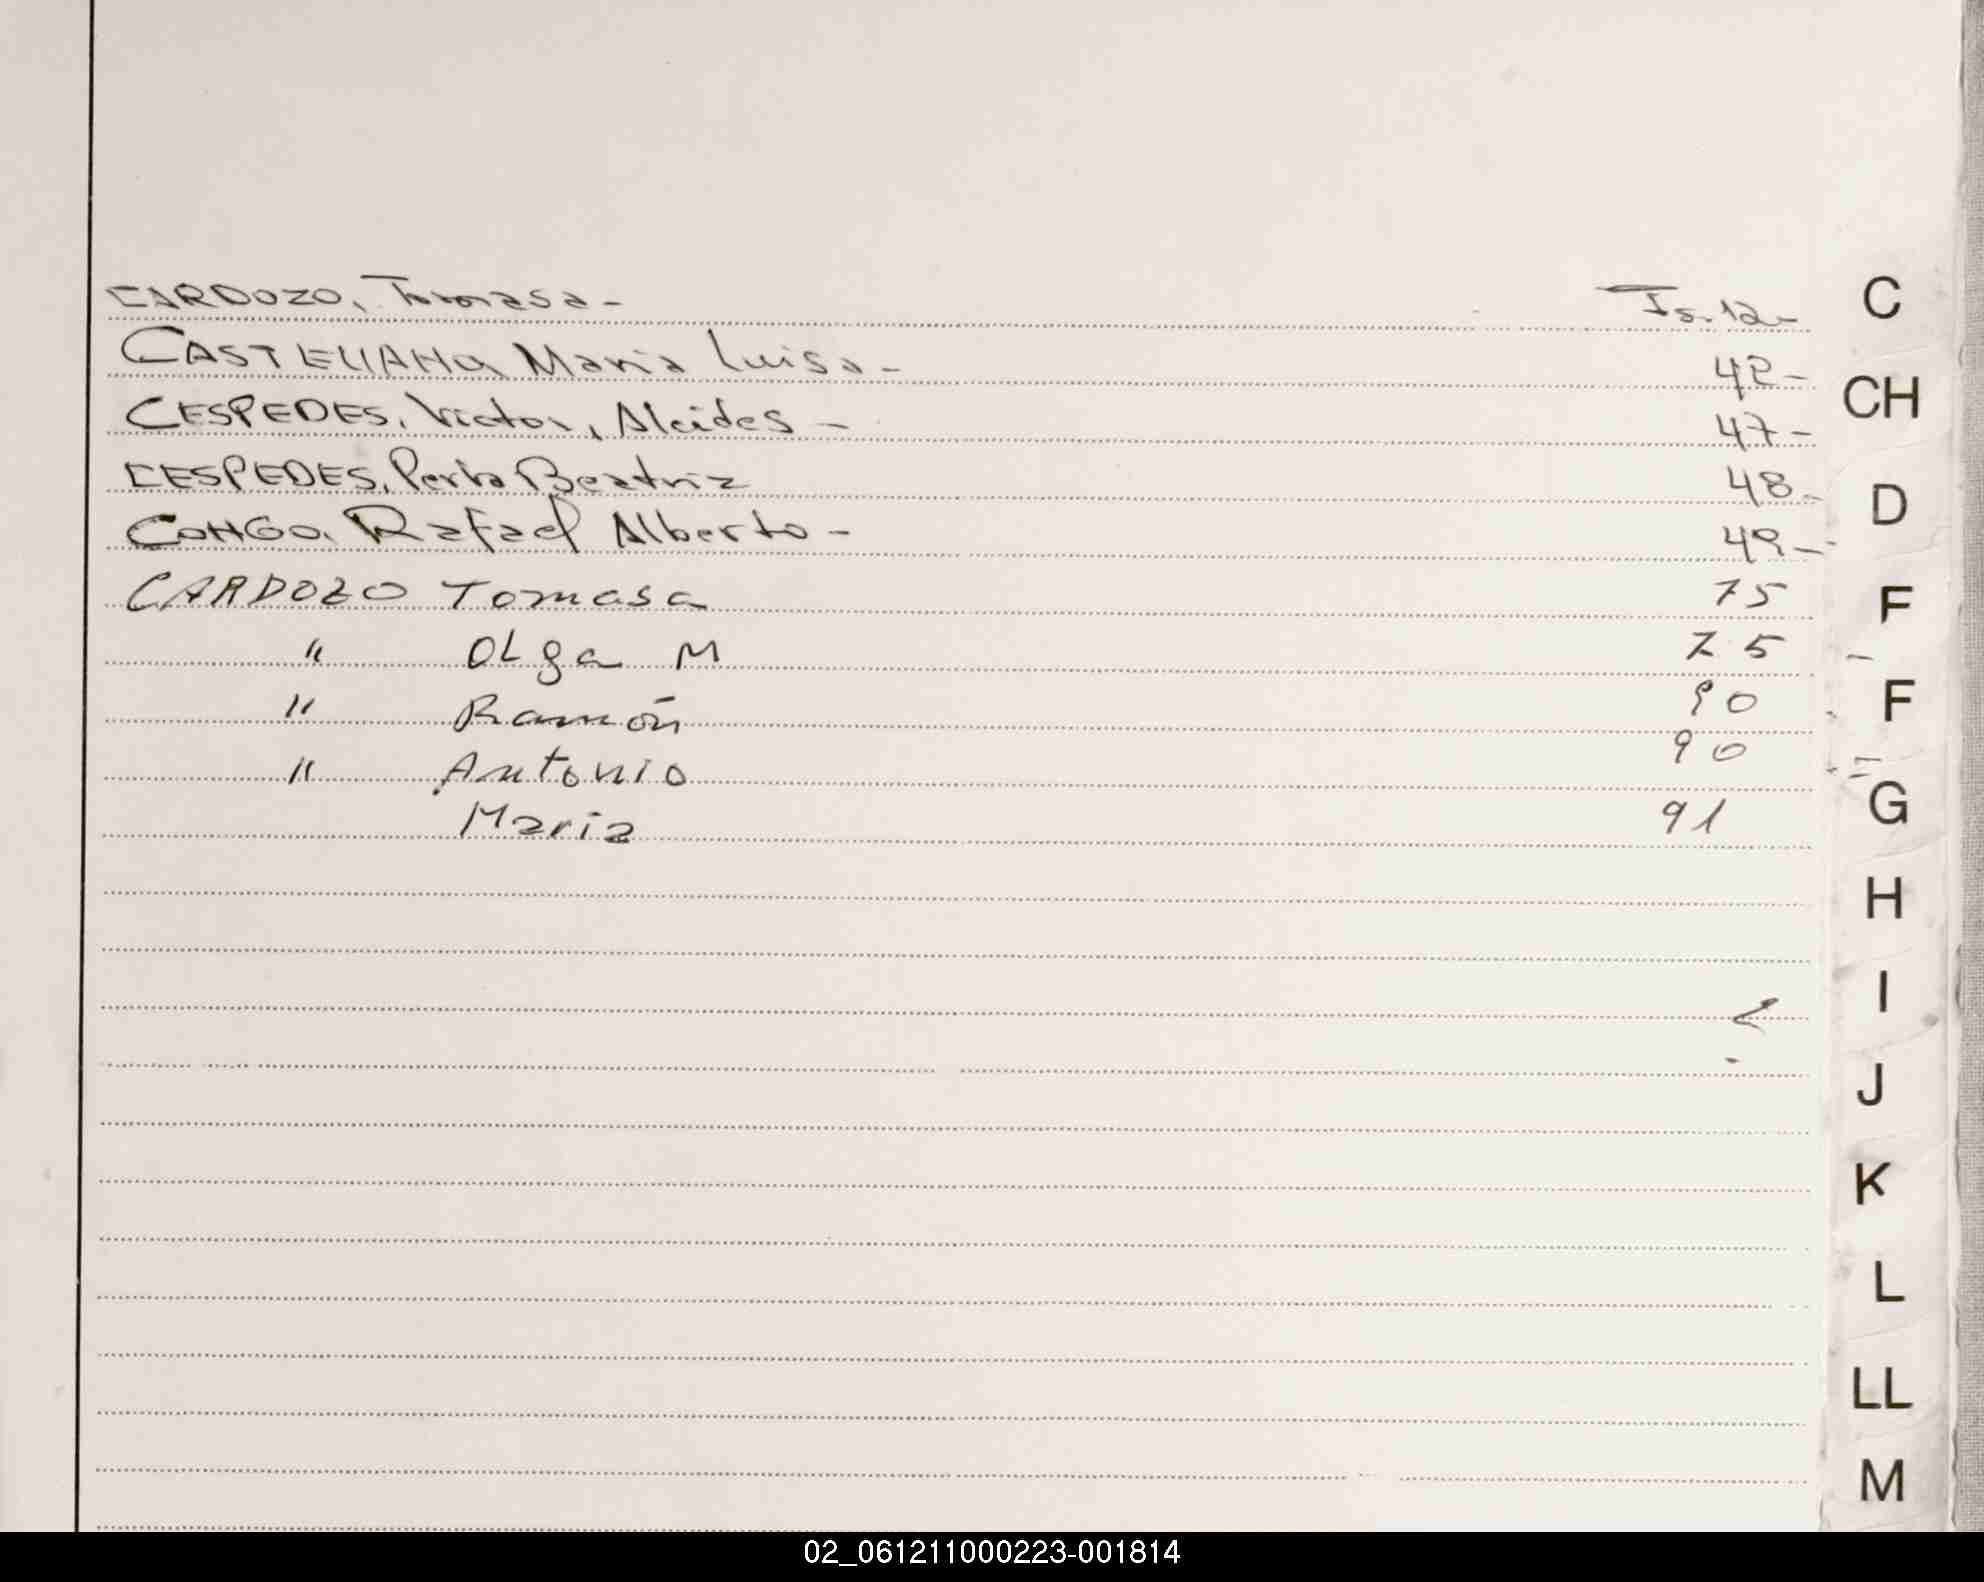 CARDOZO, Tomasa - Fs. 12 -
CASTELLANO, Maria Luisa - 42 -
CESPEDES, Victor, Alcides - 47 -
CESPEDES, Perla Beatriz 48 -
CONGO, Rafael Alberto - 49 -
CARDOZO Tomasa 75
" OLga M 75
" Ramón 90
" Antonio 90
Maria 91
C
CH
D
F
F
G
H
I
J
K
L
LL
M
02_061211000223-001814